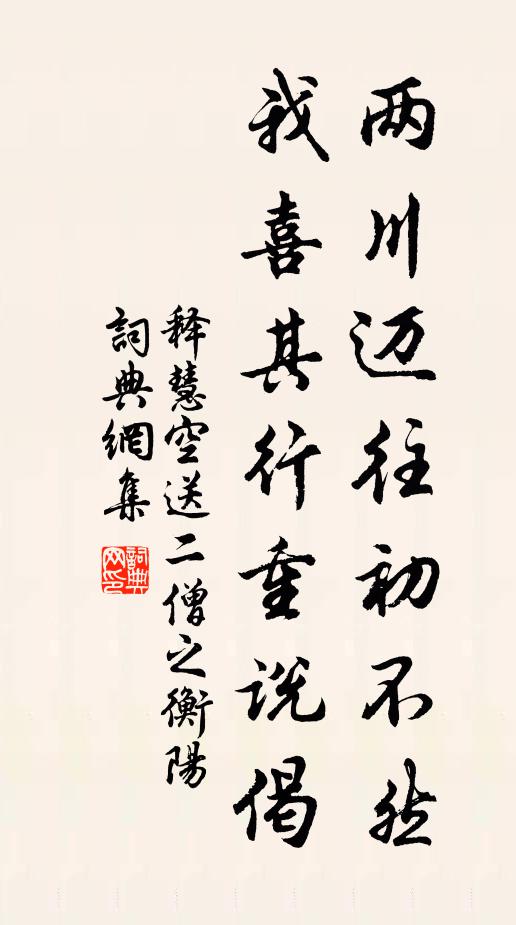 两川迈往初不然
我喜其行重说偈
释慧空送二僧之衡陽
詞典網集
詞典网印